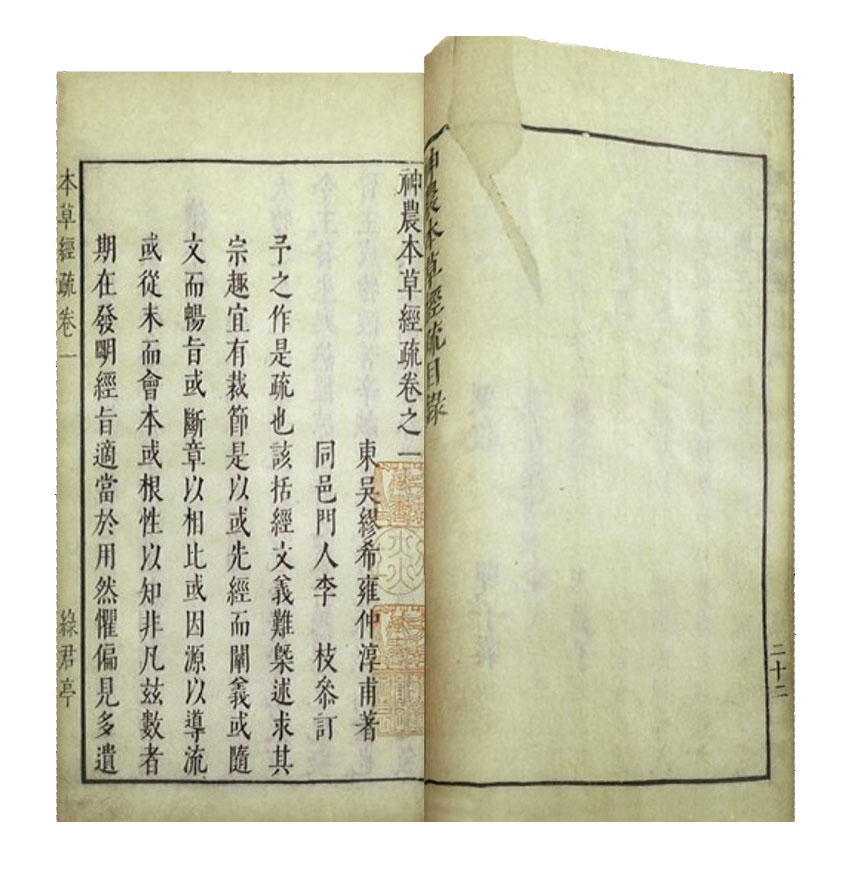 二十二
神農本草經疏目錄
神農本草經疏卷之一
東吳繆希雍仲淳甫著
同邑門人李 枝叅訂
予之作是疏也該括經文義難槩述求其
宗趣宜有裁節是以或先經而闡義或隨
文而暢旨或斷章以相比或因源以導流
或從末而會本或根性以知非凡兹數者
期在發明經旨適當於用然懼偏見多遺
本草經疏卷一
綠君亭